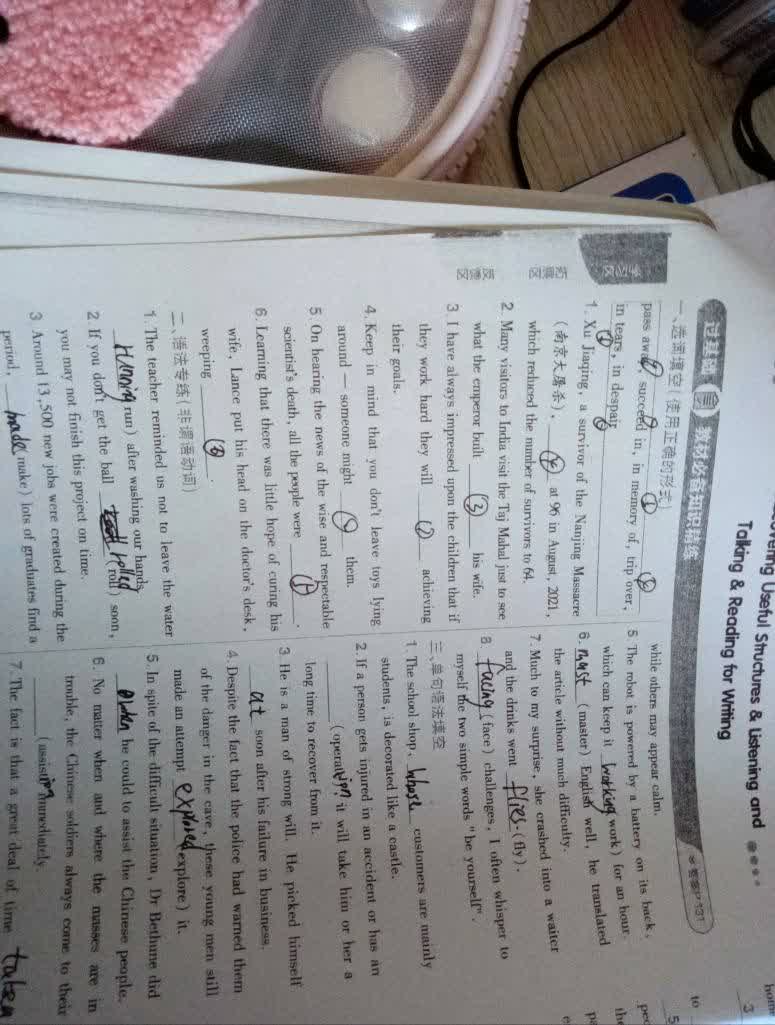 Useful Structures & Listening and
Talking & Reading for Writing
过基础 教材必备知识精练
答案P131
学习区
拓展区
反馈区
一、选词填空(使用正确的形式)
pass away, succeed in, in memory of, trip over,
in tears, in despair
1. Xu Jiaqing, a survivor of the Nanjing Massacre
(南京大屠杀), ④ at 96 in August, 2021,
which reduced the number of survivors to 64.
2. Many visitors to India visit the Taj Mahal just to see
what the emperor built ③ his wife.
3. I have always impressed upon the children that if
they work hard they will ② achieving
their goals.
4. Keep in mind that you don't leave toys lying
around — someone might them.
5. On hearing the news of the wise and respectable
scientist's death, all the people were .
6. Learning that there was little hope of curing his
wife, Lance put his head on the doctor's desk,
weeping .
二、语法专练(非谓语动词)
1. The teacher reminded us not to leave the water
running run) after washing our hands.
2. If you don't get the ball rolled (roll) soon,
you may not finish this project on time.
3. Around 13,500 new jobs were created during the
period, made (make) lots of graduates find a
while others may appear calm.
5. The robot is powered by a battery on its back,
which can keep it working work) for an hour.
6. must (master) English well, he translated
the article without much difficulty.
7. Much to my surprise, she crashed into a waiter
and the drinks went flies (fly).
8. facing (face) challenges, I often whisper to
myself the two simple words "be yourself".
三、单句语法填空
1. The school shop, whose customers are mainly
students, is decorated like a castle.
2. If a person gets injured in an accident or has an
(operation, it will take him or her a
long time to recover from it.
3. He is a man of strong will. He picked himself
at soon after his failure in business.
4. Despite the fact that the police had warned them
of the danger in the cave, these young men still
made an attempt explored explore) it.
5. In spite of the difficult situation, Dr Bethune did
he could to assist the Chinese people.
6. No matter when and where the masses are in
trouble, the Chinese soldiers always come to their
(assist immediately.
7. The fact is that a great deal of time taken